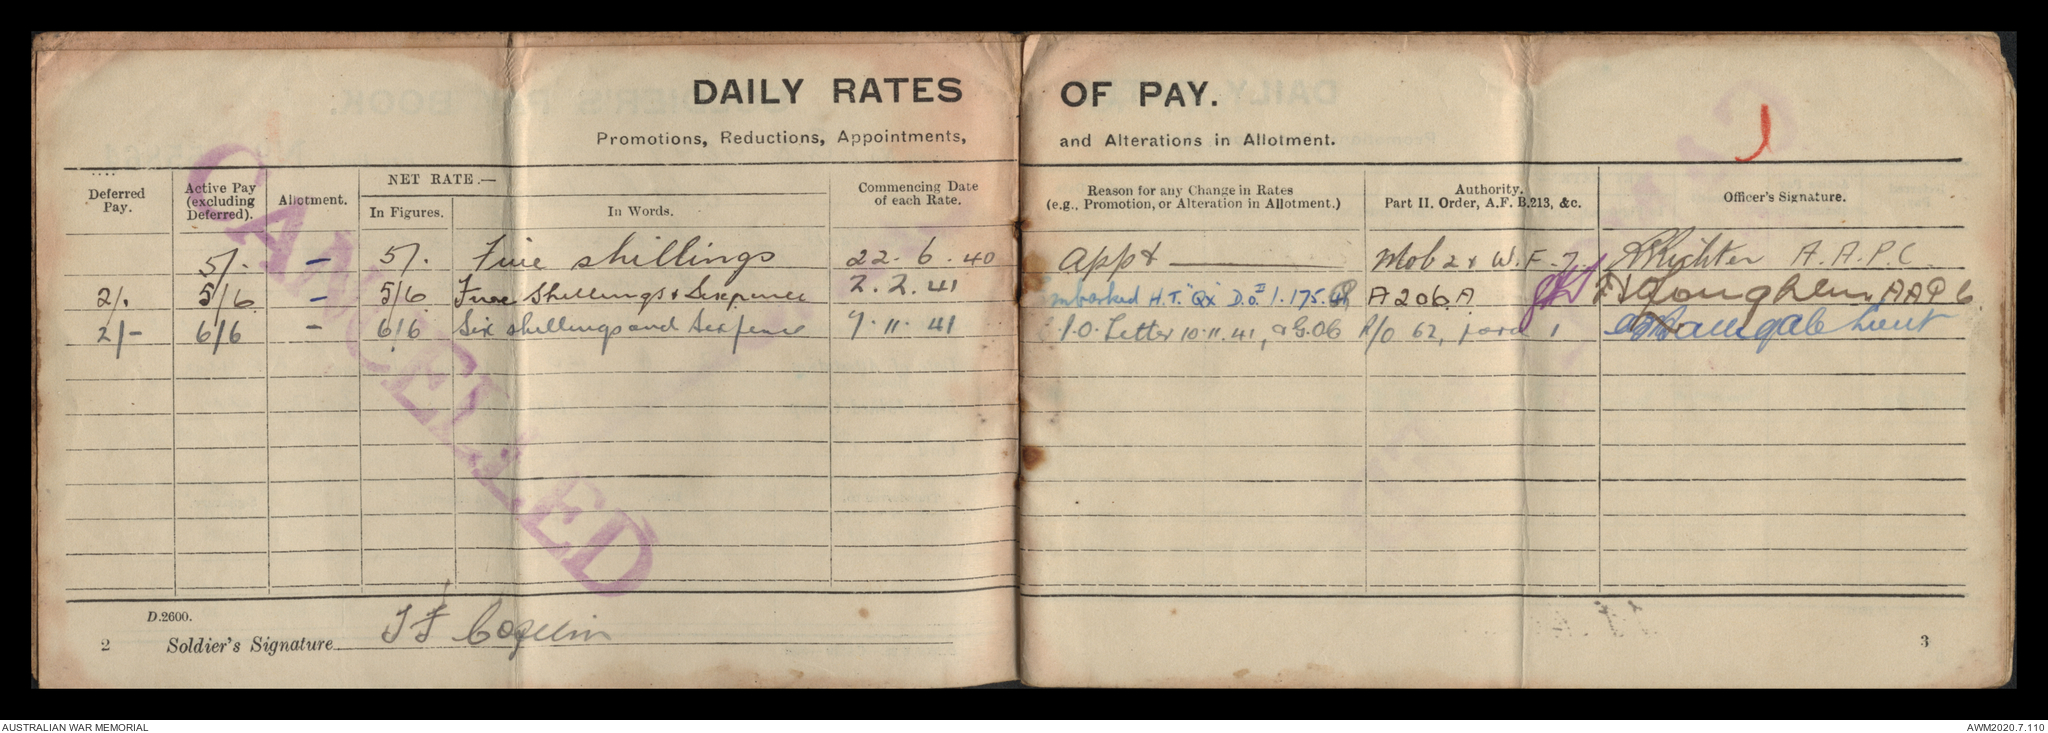 DAILY RATES OF PAY.
Promotions, Reductions, Appointments, and Alterations in Allotment.
Deferred Pay. Active Pay (excluding Deferred). Allotment. NET RATE.— In Figures. In Words. Commencing Date of each Rate. Reason for any Change in Rates (e.g., Promotion, or Alteration in Allotment.) Authority. Part II. Order, A.F. B.213, &c. Officer's Signature.
5/. – 5/. Five shillings 22.6.40 Appt Mob 2 & W.F. A.A.P.C.
2/. 5/6 – 5/6 Five Shillings & Sixpence 2.2.41 Embarked H.T. "QX" D.O. II 1.175.41 A206A AAPC
2/- 6/6 – 6/6 Six shillings and Sixpence 7.11.41 Letter 10.11.41, & G.Ob R/O 62, para 1 Lieut
CANCELLED
D.2600.
2 Soldier's Signature
3
AUSTRALIAN WAR MEMORIAL AWM2020.7.110